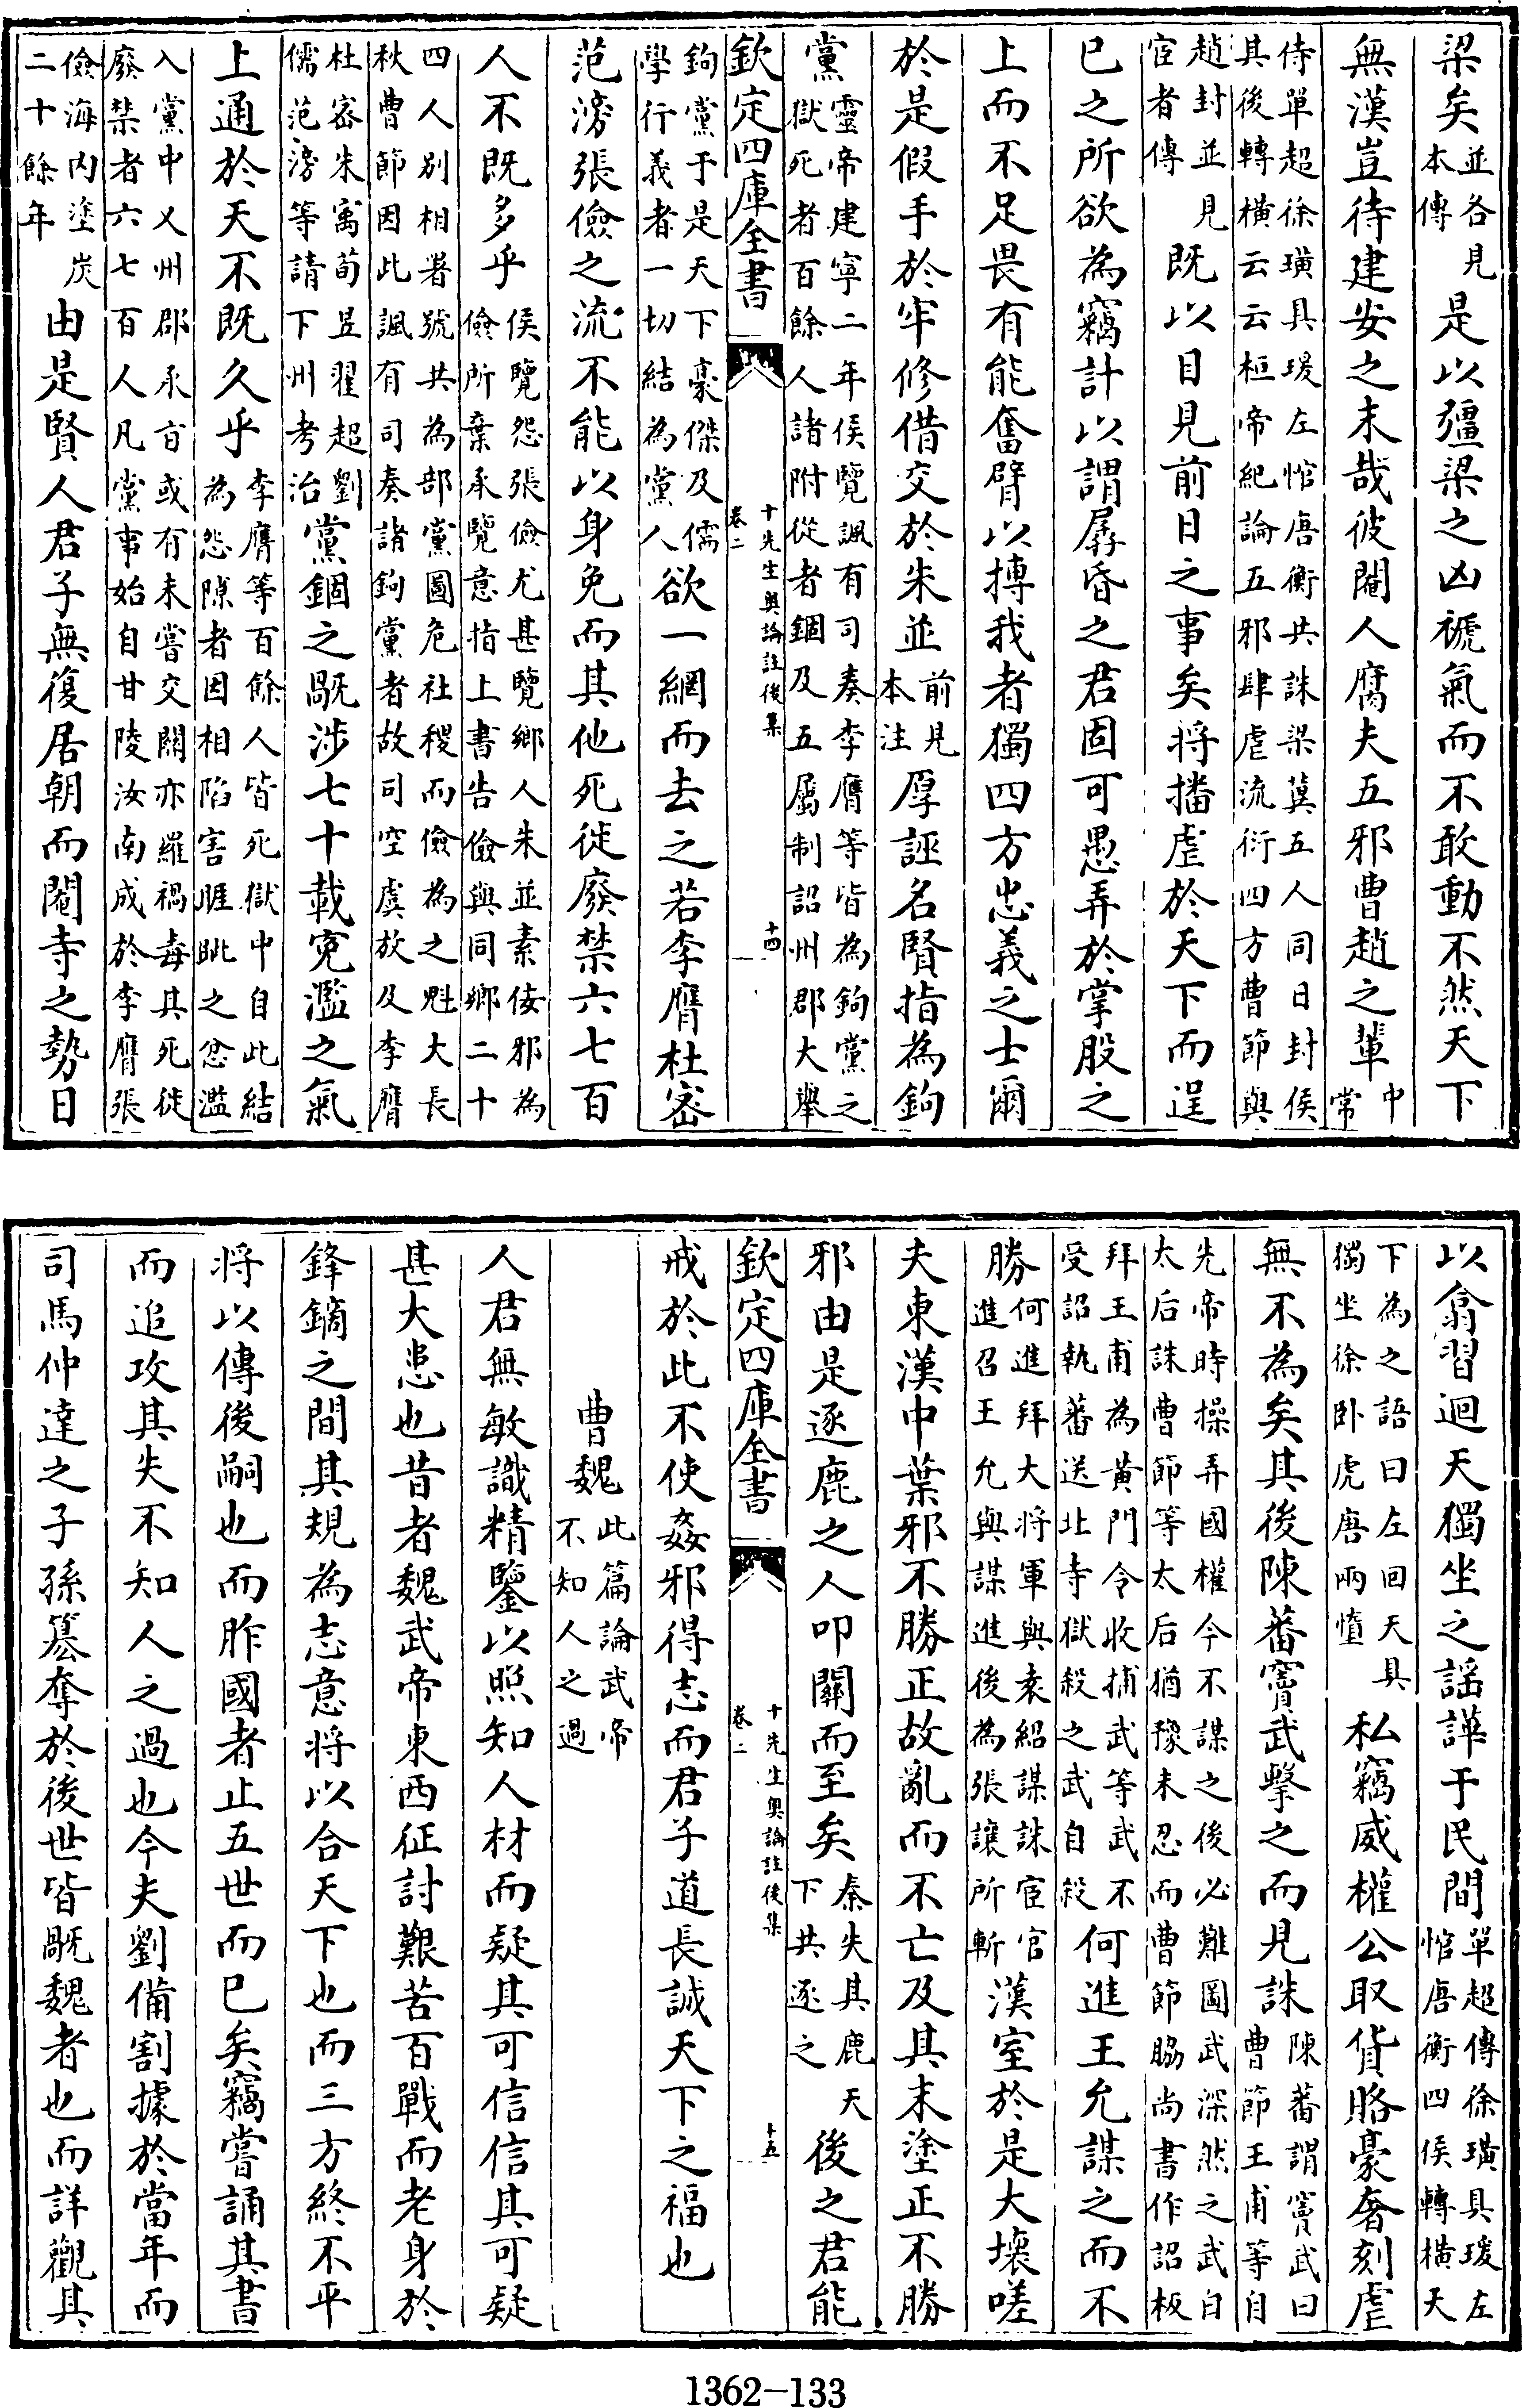 梁矣並各見本傳是以彊梁之凶褫氣而不敢動不然天下
無漢豈待建安之末哉彼閹人腐夫五邪曹趙之輩中常
侍單超徐璜具瑗左悺唐衡共誅梁冀五人同日封侯
其後轉橫云云桓帝紀論五邪肆虐流衍四方曹節與
趙封並見宦者傳既以目見前日之事矣將播虐於天下而逞
已之所欲為竊計以謂孱昏之君固可愚弄於掌股之
上而不足畏有能奮臂以搏我者獨四方忠義之士爾
於是假手於牢修借交於朱並前見本注厚誣名賢指為鉤
黨靈帝建寧二年侯覽諷有司奏李膺等皆為鉤黨之
獄死者百餘人諸附從者錮及五屬制詔州郡大舉
欽定四庫全書
十先生奧論註後集
卷二
十四
鉤黨于是天下豪傑及儒學行義者一切結為黨人欲一網而去之若李膺杜密
范滂張儉之流不能以身免而其他死徙廢禁六七百
人不既多乎侯覽怨張儉尤甚覽鄉人朱並素佞邪為
儉所棄承覽意指上書告儉與同鄉二十
四人別相署號共為部黨圖危社稷而儉為之魁大長
秋曹節因此諷有司奏諸鉤黨者故司空虞放及李膺
杜密朱寓荀昱翟超劉儒范滂等請下州考治黨錮之旤涉七十載寃濫之氣
上通於天不既久乎李膺等百餘人皆死獄中自此結
為怨隙者因相陷害睚眦之忿濫
入黨中又州郡承旨或有未嘗交關亦羅禍毒其死徙
廢禁者六七百人凡黨事始自甘陵汝南成於李膺張
儉海内塗炭二十餘年由是賢人君子無復居朝而閹寺之勢日
以翕習迴天獨坐之謡譁于民間單超傳徐璜具瑗左
悺唐衡四侯轉橫天
下為之語曰左回天具獨坐徐卧虎唐兩墮私竊威權公取貨賂豪奢刻虐
無不為矣其後陳蕃竇武擊之而見誅陳蕃謂竇武曰
曹節王甫等自
先帝時操弄國權今不謀之後必難圖武深然之武白
太后誅曹節等太后猶豫未忍而曹節脇尚書作詔板
拜王甫為黄門令收捕武等武不
受詔執蕃送北寺獄殺之武自殺何進王允謀之而不
勝何進拜大將軍與袁紹謀誅宦官
進召王允與謀進後為張讓所斬漢室於是大壞嗟
夫東漢中葉邪不勝正故亂而不亡及其末塗正不勝
邪由是逐鹿之人叩關而至矣秦失其鹿天下共逐之後之君能
欽定四庫全書
十先生奧論註後集
卷二
十五
戒於此不使姦邪得志而君子道長誠天下之福也
曹魏此篇論武帝不知人之過
人君無敏識精鑒以照知人材而疑其可信信其可疑
甚大患也昔者魏武帝東西征討艱苦百戰而老身於
鋒鏑之間其規為志意將以合天下也而三方終不平
將以傳後嗣也而胙國者止五世而已矣竊嘗誦其書
而追攻其失不知人之過也今夫劉備割據於當年而
司馬仲達之子孫簒奪於後世皆旤魏者也而詳觀其
1362-133